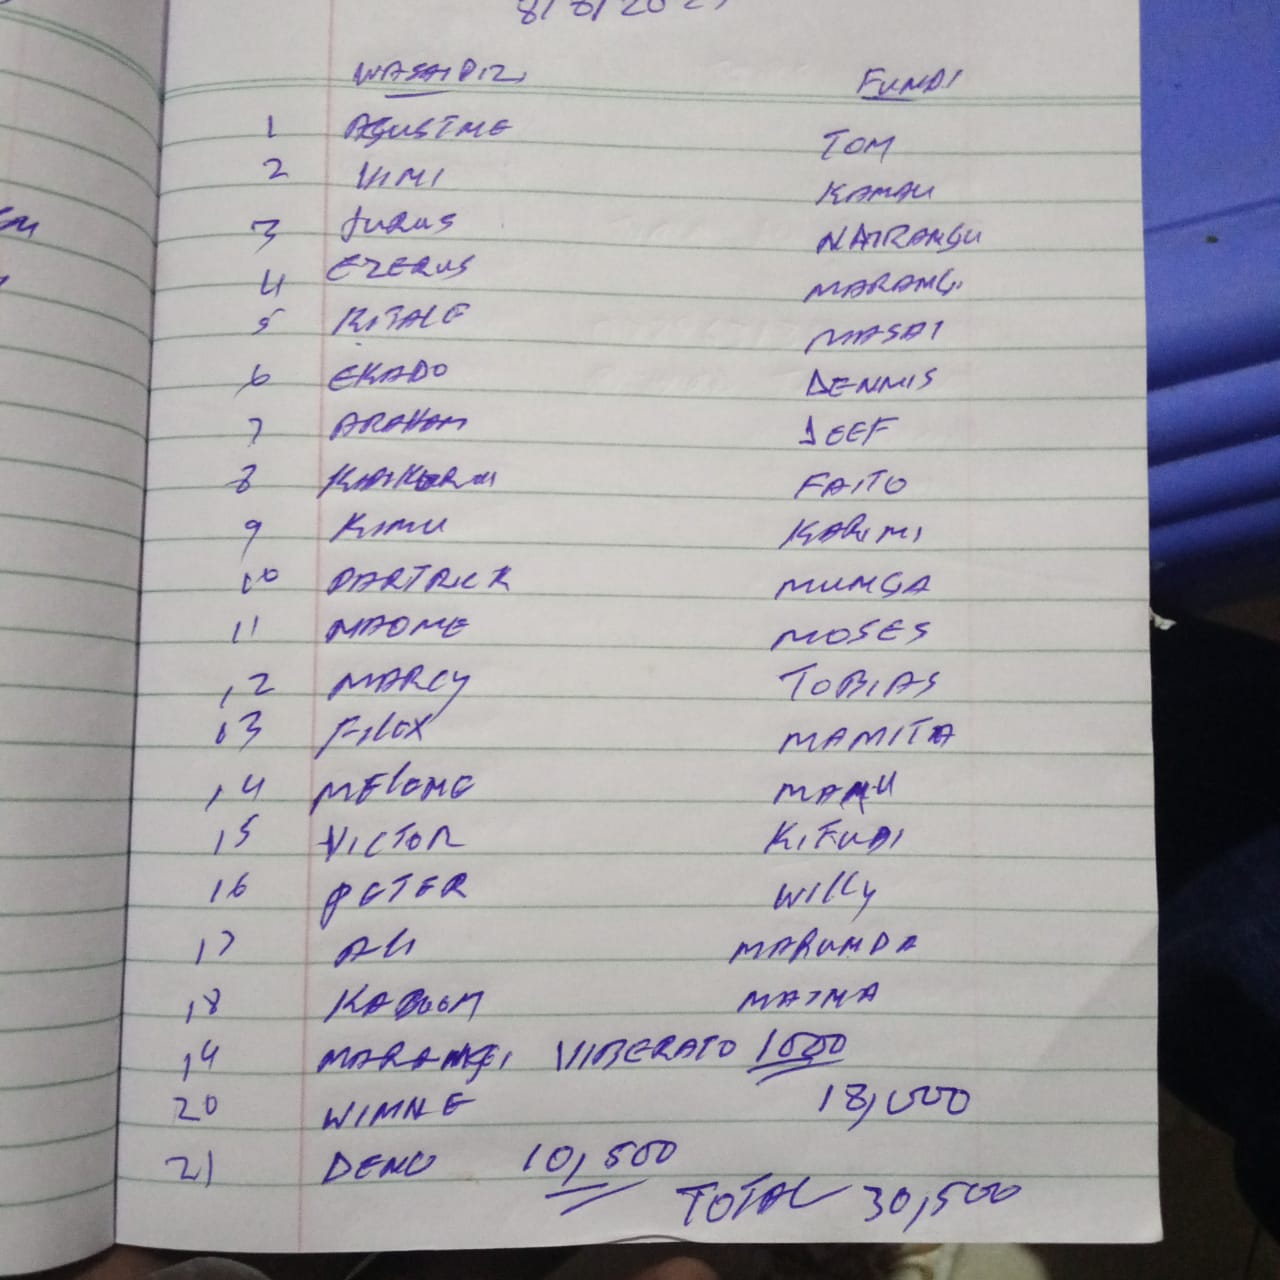 8/8/202
WASAIDIZI FUNDI
1 AGUSTINE TOM
2 VIMI KAMAU
3 JURUS NAIRANGU
4 EZERUS MARANGI
5 KITALE MASAI
6 EKADO DENNIS
7 ARAHAM JEEF
8 FAITO
9 KIMU KARIMI
10 PARTRICK MUNGA
11 NAOME MOSES
12 MARCY TOBIAS
13 FILEX MAMITA
14 MELENE MANU
15 VICTOR KIFUDI
16 PETER WILLY
17 ALI MARUNDA
18 KABOOM MAINA
19 MARANGI VIBERATO 1000
20 WINNE 18,000
21 DENO 10,500
TOTAL 30,500